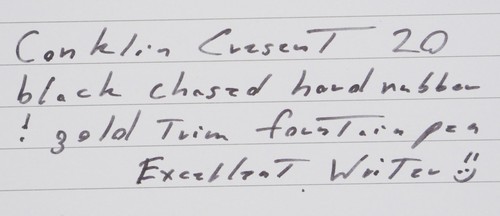 Conklin Cresent 20
black chased hard rubber
! gold Trim fountain pen
Excellent Writer !!